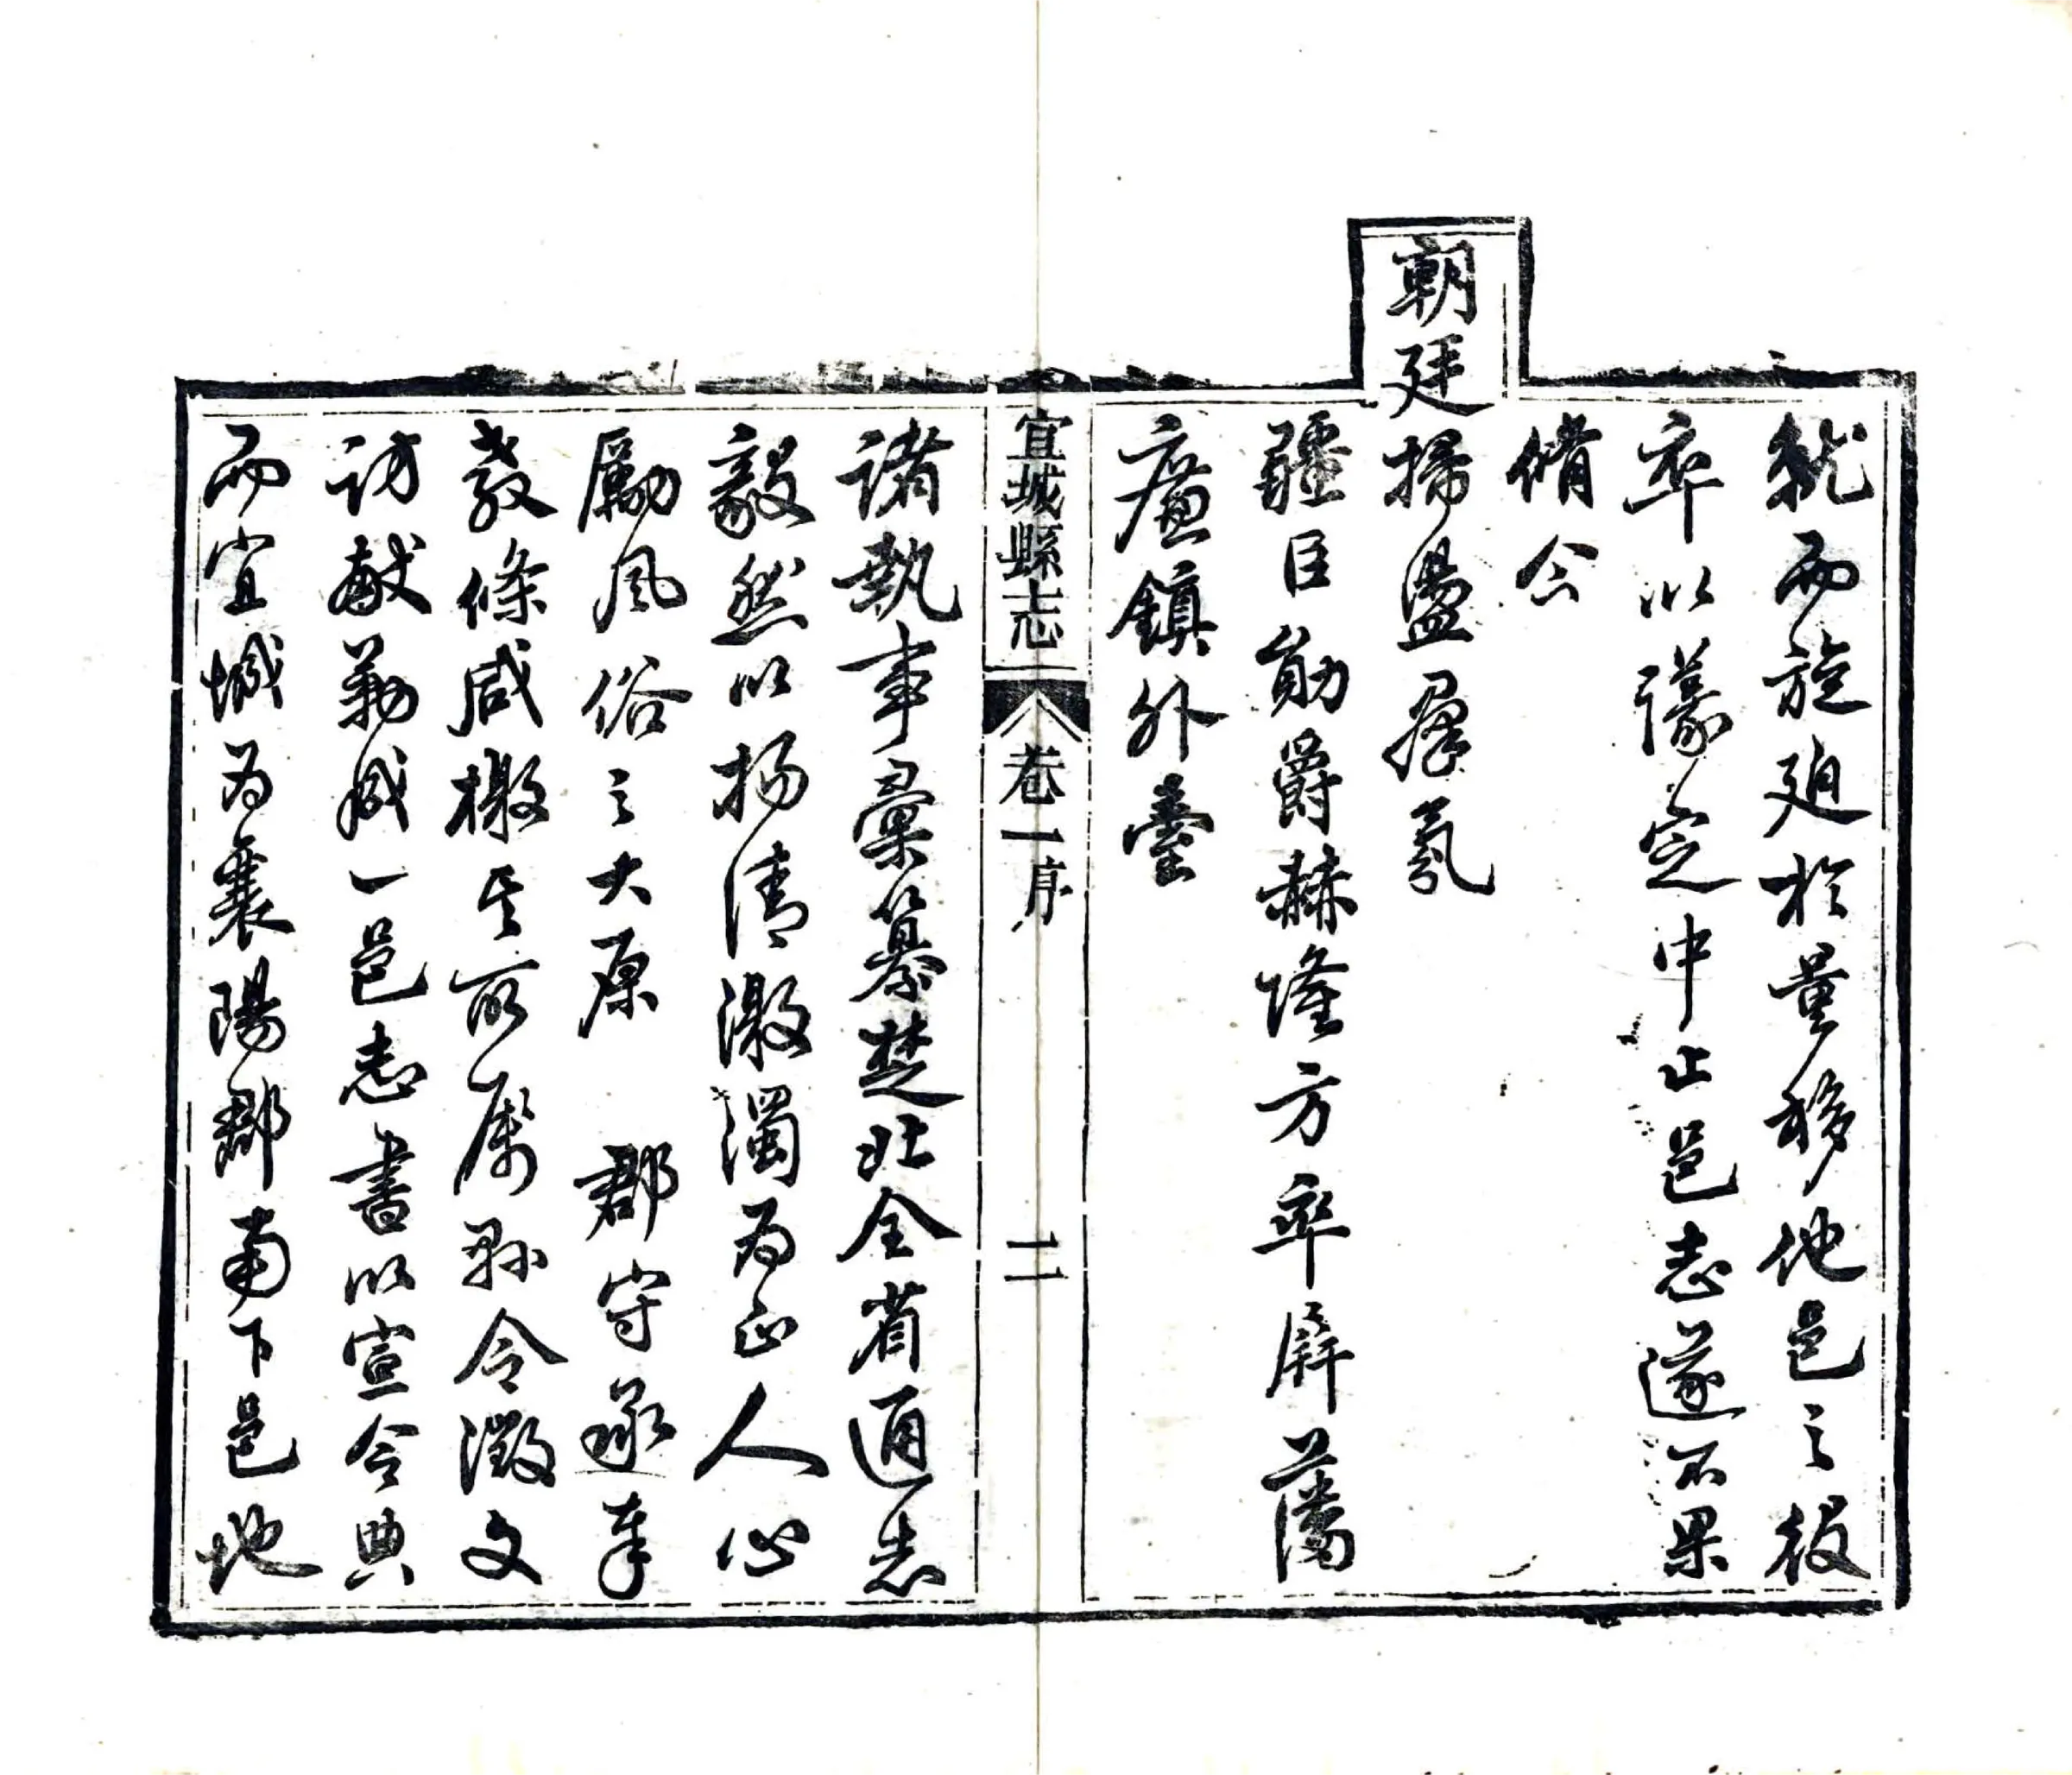 就而旋迫於量移他邑之役
卒以議定中止邑志遂不果
脩今
朝廷掃盪羣氛
疆臣勛爵赫隆方率屏藩
廉鎮外臺
宜城縣志
卷一序
二
諸執事彙纂楚北全省通志
毅然以揚清激濁為正人心
勵風俗之大原 郡守承奉
教條咸檄其所属縣令徵文
訪献勒成一邑志書以宣令典
而宜城為襄陽郡南下邑地